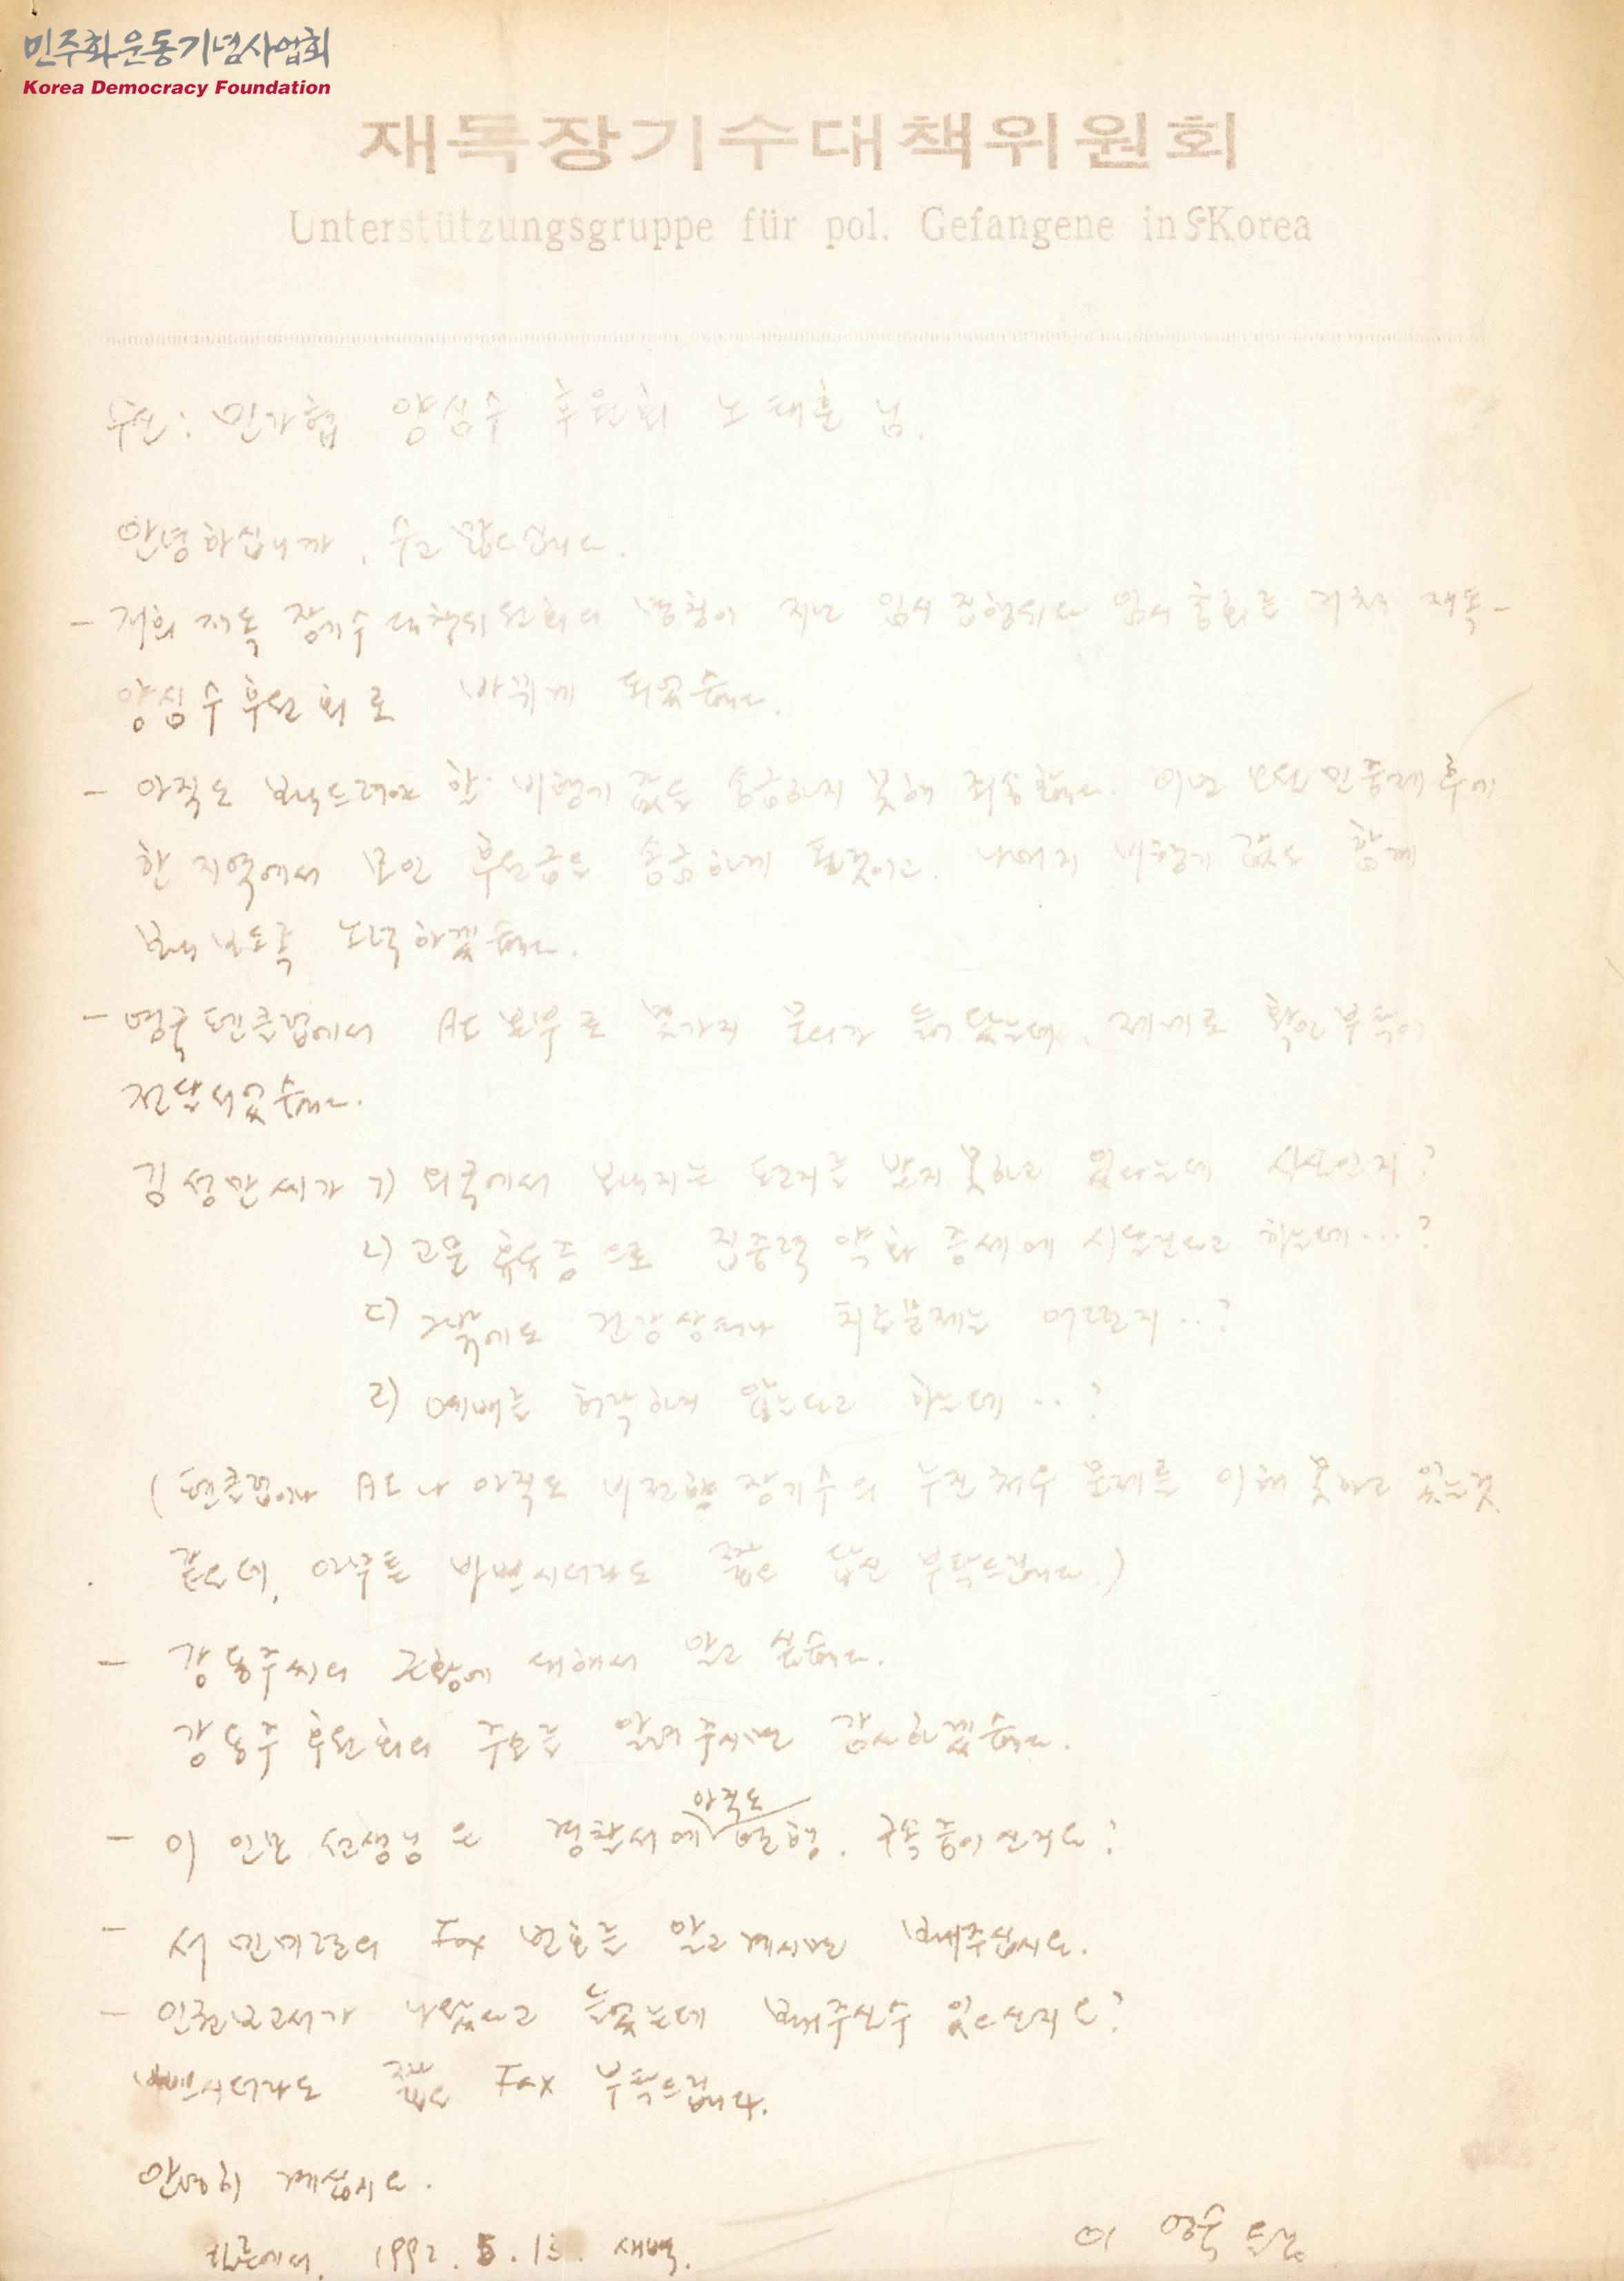 민주화운동기념사업회
Korea Democracy Foundation
재독장기수대책위원회
Unterstützungsgruppe für pol. Gefangene in S-Korea
수신: 민가협 양심수 후원회 노태훈 님.
안녕하십니까, 수고 많으십니다.
- 저희 재독 장기수 대책위원회의 명칭이 지난 임시 집행위와 임시 총회를 거쳐 재독-
양심수후원회로 바뀌게 되었습니다.
- 아직도 보내드려야 할 비행기 값을 송금하지 못해 죄송합니다. 이번 오월 민중제 후에
한 지역에서 모인 후원금을 송금하게 될 것이고. 나머지 비행기 값도 함께
보내도록 노력하겠습니다.
- 영국 펜클럽에서 AI 회우로 몇가지 문의가 들어 왔는데, 제게로 확인 부탁이
전달되었습니다.
김성만씨가 ㄱ) 외국에서 보내지는 편지를 받지 못하고 있다는데 사실인지?
ㄴ) 고문 후유증으로 집중력 약화 증세에 시달린다고 하는데...?
ㄷ) 건강상태나 치료문제는 어떤지...?
ㄹ) 예배를 허락하지 않는다고 하는데...?
(펜클럽이나 AI나 아직도 비전향 장기수의 처우 문제를 이해 못하고 있는것
같은데, 바쁘시더라도 짧은 답신 부탁드립니다.)
- 강용주씨의 근황에 대해서 알고 싶습니다.
강용주 후원회의 주소를 알려주시면 감사하겠습니다.
- 이 인모 선생님은 경찰서에 아직도 구속중이신지요?
- 서 Fax 번호를 알고 계시면 보내주십시오.
- 인권보고서가 나왔다고 들었는데 보내주실수 있으신지요?
바쁘시더라도 짧은 Fax 부탁드립니다.
안녕히 계십시오.
1992. 5. 13. 새벽.
이 영숙 드림